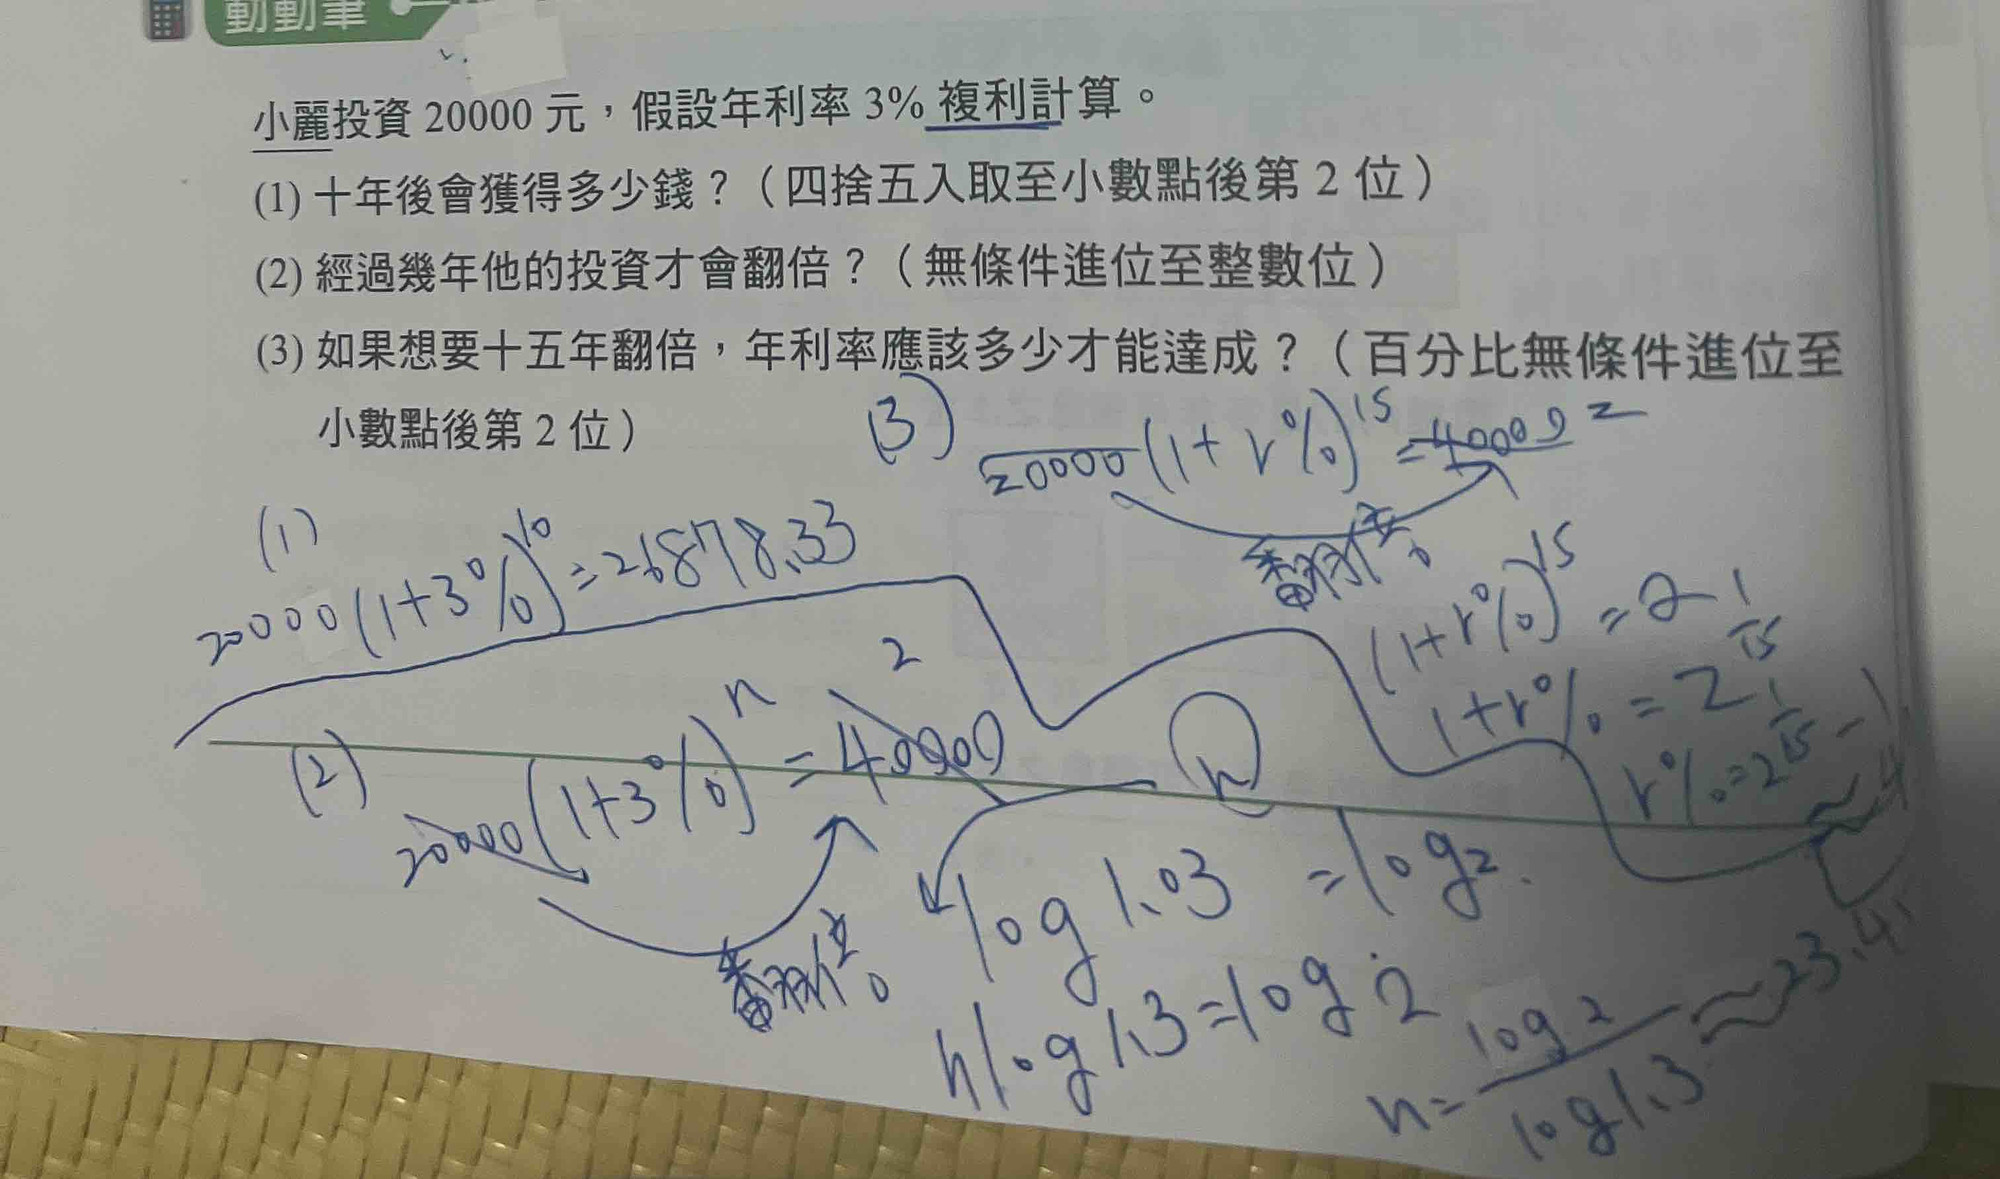 動動筆
小麗投資 20000 元，假設年利率 3% 複利計算。
(1) 十年後會獲得多少錢？（四捨五入取至小數點後第 2 位）
(2) 經過幾年他的投資才會翻倍？（無條件進位至整數位）
(3) 如果想要十五年翻倍，年利率應該多少才能達成？（百分比無條件進位至
小數點後第 2 位）
(3) 20000(1+r%)^15=40000 2
翻倍。
(1)
20000(1+3%)^10=26878.33
(1+r%)^15=2
1+r%=2^(1/15)
r%=2^(1/15)-1
≈4
(2) 20000(1+3%)^n=40000 2
翻倍。
n
log 1.03 = log2.
nlog 1.3=log 2
n= log 2 / log 1.3 ≈23.4